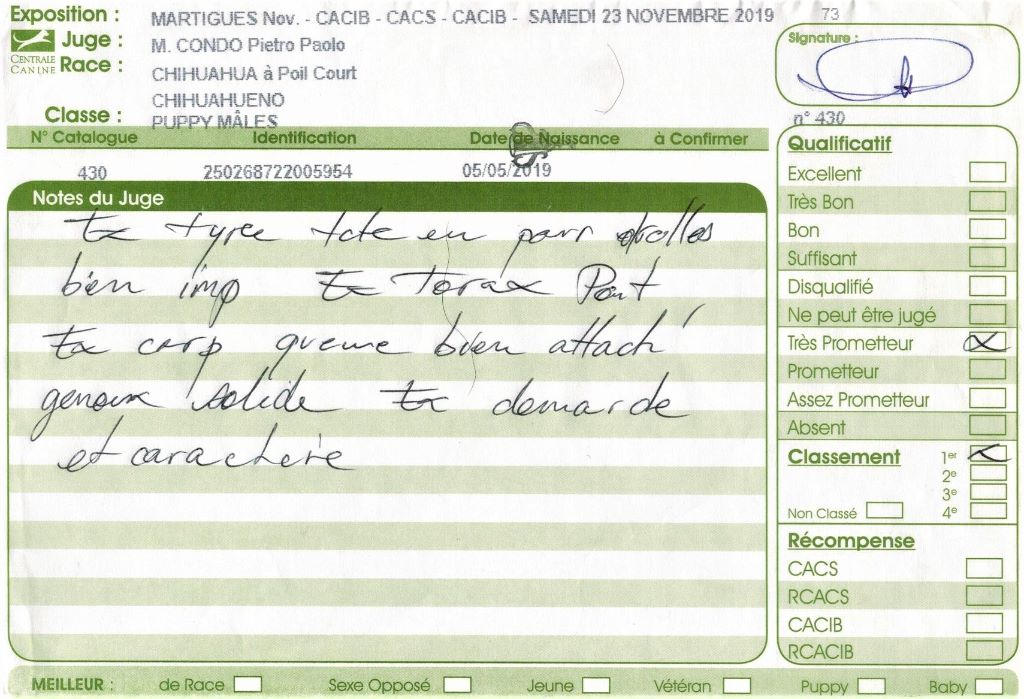 Exposition : MARTIGUES Nov. - CACIB - CACS - CACIB - SAMEDI 23 NOVEMBRE 2019 73
Juge : M. CONDO Pietro Paolo
CENTRALE CANINE
Race : CHIHUAHUA à Poil Court
CHIHUAHUENO
Classe : PUPPY MÂLES
N° Catalogue Identification Date de Naissance à Confirmer
430 250268722005954 05/05/2019
Notes du Juge
Tx tyree tete en pour
bien imp Tx Torax Pont
Tx corp queue bien attach
genoux solide Tx demarde
et carachère
Signature :
n° 430
Qualificatif
Excellent
Très Bon
Bon
Suffisant
Disqualifié
Ne peut être jugé
Très Prometteur X
Prometteur
Assez Prometteur
Absent
Classement 1er X
2e
3e
Non Classé 4e
Récompense
CACS
RCACS
CACIB
RCACIB
MEILLEUR : de Race Sexe Opposé Jeune Vétéran Puppy Baby